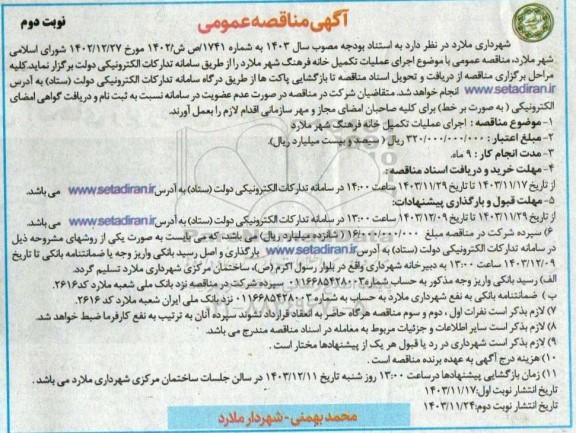 آگهی مناقصه عمومی
نوبت دوم
شهرداری ملارد در نظر دارد به استناد بودجه مصوب سال ۱۴۰۳ به شماره ۱۷۴۱/ص ش/۱۴۰۲ مورخ ۱۴۰۲/۱۲/۲۷ شورای اسلامی
شهر ملارد، مناقصه عمومی با موضوع اجرای عملیات تکمیل خانه فرهنگ شهر ملارد را از طریق سامانه تدارکات الکترونیکی دولت برگزار نماید. کلیه
مراحل برگزاری مناقصه از دریافت و تحویل اسناد مناقصه تا بازگشایی پاکت ها از طریق درگاه سامانه تدارکات الکترونیکی دولت (ستاد) به آدرس
www.setadiran.ir انجام خواهد شد. متقاضیان شرکت در مناقصه در صورت عدم عضویت در سامانه نسبت به ثبت نام و دریافت گواهی امضای
الکترونیکی ( به صورت بر خط) برای کلیه صاحبان امضای مجاز و مهر سازمانی اقدام لازم را بعمل آورند.
۱- موضوع مناقصه : اجرای عملیات تکمیل خانه فرهنگ شهر ملارد
۲- مبلغ اعتبار : ۳۲۰/۰۰۰/۰۰۰/۰۰۰ ریال ( سیصد و بیست میلیارد ریال).
۳- مدت انجام کار : ۹ ماه.
۴- مهلت خرید و دریافت اسناد مناقصه :
از تاریخ ۱۴۰۳/۱۱/۱۷ تا تاریخ ۱۴۰۳/۱۱/۲۹ ساعت ۱۴:۰۰ در سامانه تدارکات الکترونیکی دولت (ستاد) به آدرس www.setadiran.ir می باشد.
۵- مهلت قبول و بارگذاری پیشنهادات:
از تاریخ ۱۴۰۳/۱۱/۲۹ تا تاریخ ۱۴۰۳/۱۲/۰۹ ساعت ۱۳:۰۰ در سامانه تدارکات الکترونیکی دولت (ستاد) به آدرس www.setadiran.ir می باشد.
۶) سپرده شرکت در مناقصه مبلغ ۱۶/۰۰۰/۰۰۰/۰۰۰ ( شانزده میلیارد ریال) می باشد، که می بایست به صورت یکی از روشهای مشروحه ذیل
در سامانه تدارکات الکترونیکی دولت (ستاد) به آدرس www.setadiran.ir بارگذاری و اصل رسید بانکی واریز وجه یا ضمانتنامه بانکی تا تاریخ
۱۴۰۳/۱۲/۰۹ ساعت ۱۳:۰۰ به دبیرخانه شهرداری واقع در بلوار رسول اکرم (ص)، ساختمان مرکزی شهرداری ملارد تسلیم گردد.
الف) رسید بانکی واریز وجه مذکور به حساب شماره ۰۱۱۶۶۸۵۴۲۸۰۰۳ سپرده شرکت در مناقصه نزد بانک ملی شعبه ملارد کد ۲۶۱۶.
ب ) ضمانتنامه بانکی به نفع شهرداری ملارد به حساب به شماره ۰۱۱۶۶۸۵۴۲۸۰۰۳ نزد بانک ملی ایران شعبه ملارد کد ۲۶۱۶
۷) لازم بذکر است نفرات اول ، دوم و سوم مناقصه هرگاه حاضر به انعقاد قرارداد نشوند سپرده آنان به ترتیب به نفع کارفرما ضبط خواهد شد.
۸) لازم بذکر است سایر اطلاعات و جزئیات مربوط به معامله در اسناد مناقصه مندرج می باشد.
۹) لازم بذکر است شهرداری در رد یا قبول هر یک از پیشنهادها مختار است .
۱۰) هزینه درج آگهی به عهده برنده مناقصه است .
۱۱) زمان بازگشایی پیشنهادها در ساعت ۱۳:۰۰ روز شنبه تاریخ ۱۴۰۳/۱۲/۱۱ در سالن جلسات ساختمان مرکزی شهرداری ملارد می باشد .
تاریخ انتشار نوبت اول: ۱۴۰۳/۱۱/۱۷
تاریخ انتشار نوبت دوم: ۱۴۰۳/۱۱/۲۴
محمد بهمنی - شهردار ملارد